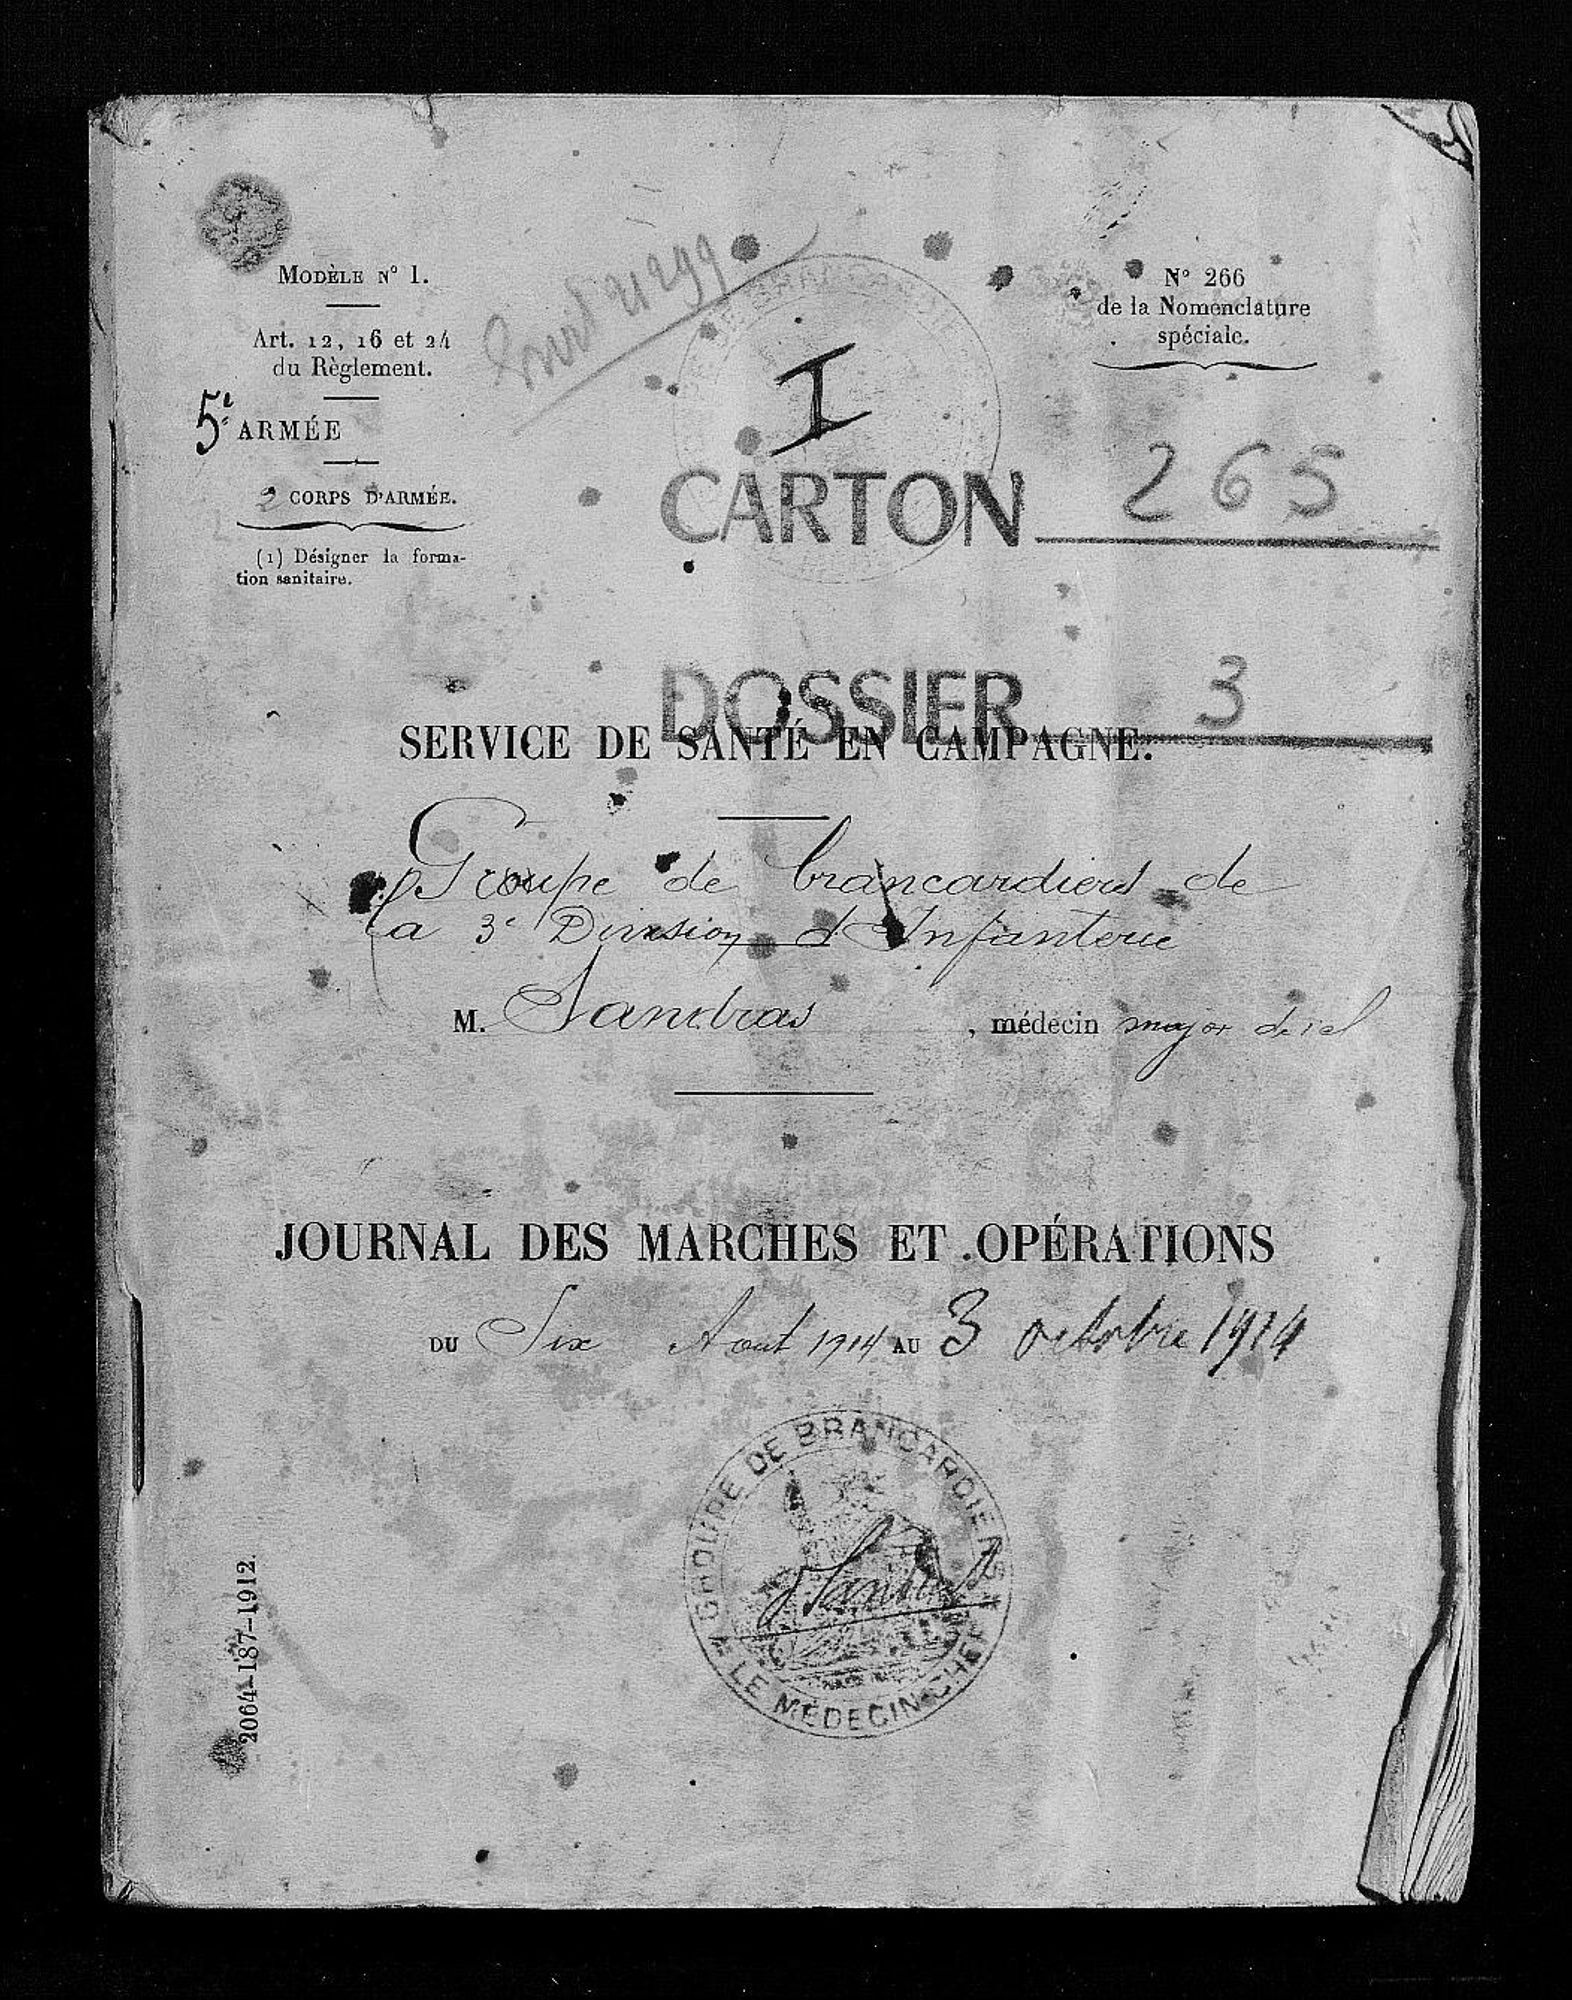 MODÈLE N° 1.
Art. 12, 16 et 24
du Règlement.
5e ARMÉE
2 CORPS D'ARMÉE.
(1) Désigner la forma-
tion sanitaire.
N° 266
de la Nomenclature
spéciale.
I
CARTON 265
DOSSIER 3
SERVICE DE SANTÉ EN CAMPAGNE.
Groupe de brancardiers de
la 3e Division d'Infanterie
M. Sandras, médecin major de
JOURNAL DES MARCHES ET OPÉRATIONS
DU Six Aout 1914 AU 3 octobre 1914
GROUPE DE BRANCARDIERS
Sandras
LE MÉDECIN CHEF
2064-187-1912.